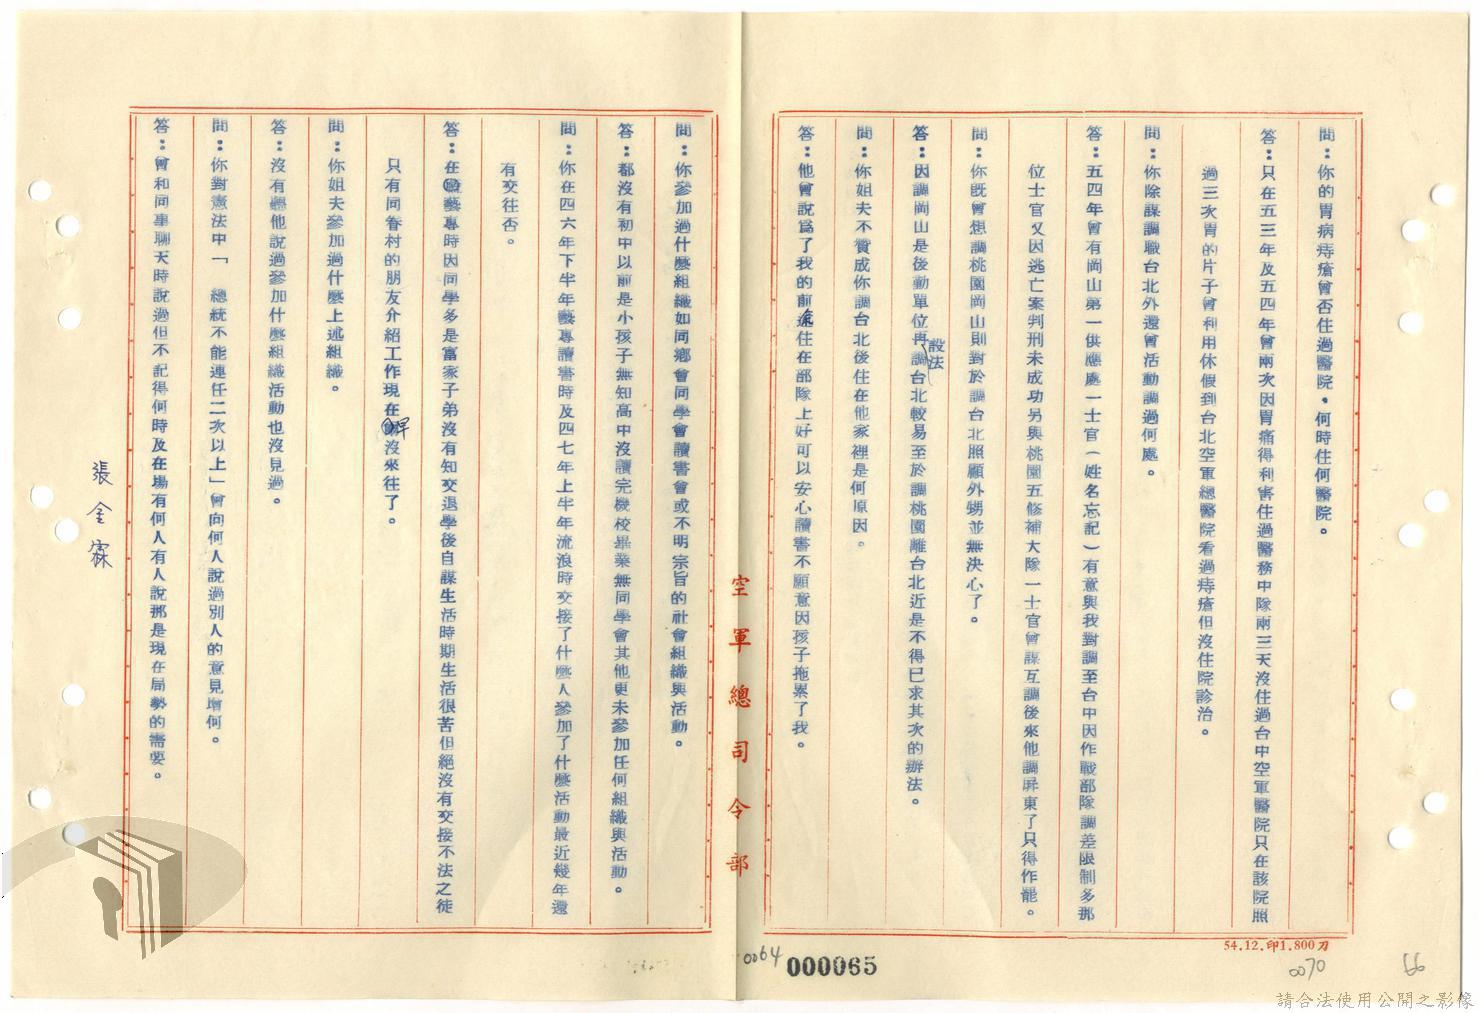 問：你的胃病痔瘡曾否住過醫院，何時住何醫院。
答：只在五三年及五四年曾兩次因胃痛得利害住過醫務中隊兩三天沒住過台中空軍醫院只在該院照
過三次胃的片子曾利用休假到台北空軍總醫院看過痔瘡但沒住院診治。
問：你除謀調職台北外還曾活動調過何處。
答：五四年曾有岡山第一供應處一士官（姓名忘記）有意與我對調至台中因作戰部隊調差限制多那
位士官又因逃亡案判刑未成功另與桃園五修補大隊一士官曾謀互調後來他調屏東了只得作罷。
問：你既曾想調桃園岡山則對於調台北照顧外甥並無決心了。
答：因調岡山是後勤單位再設法調台北較易至於調桃園離台北近是不得已求其次的辦法。
問：你姐夫不贊成你調台北後住在他家裡是何原因。
答：他曾說爲了我的前途住在部隊上好可以安心讀書不願意因孩子拖累了我。
空軍總司令部
問：你參加過什麼組織如同鄉會同學會讀書會或不明宗旨的社會組織與活動。
答：都沒有初中以前是小孩子無知高中沒讀完機校畢業無同學會其他更未參加任何組織與活動。
問：你在四六年下半年藝專讀書時及四七年上半年流浪時交接了什麼人參加了什麼活動最近幾年還
有交往否。
答：在藝專時因同學多是富家子弟沒有知交退學後自謀生活時期生活很苦但絕沒有交接不法之徒
只有同眷村的朋友介紹工作現在早沒來往了。
問：你姐夫參加過什麼上述組織。
答：沒有聽他說過參加什麼組織活動也沒見過。
問：你對憲法中「　總統不能連任二次以上」曾向何人說過別人的意見增何。
答：曾和同事聊天時說過但不記得何時及在場有何人有人說那是現在局勢的需要。
張全霖
54.12.印1.800刀
0064
000065
0070
66
請合法使用公開之影像